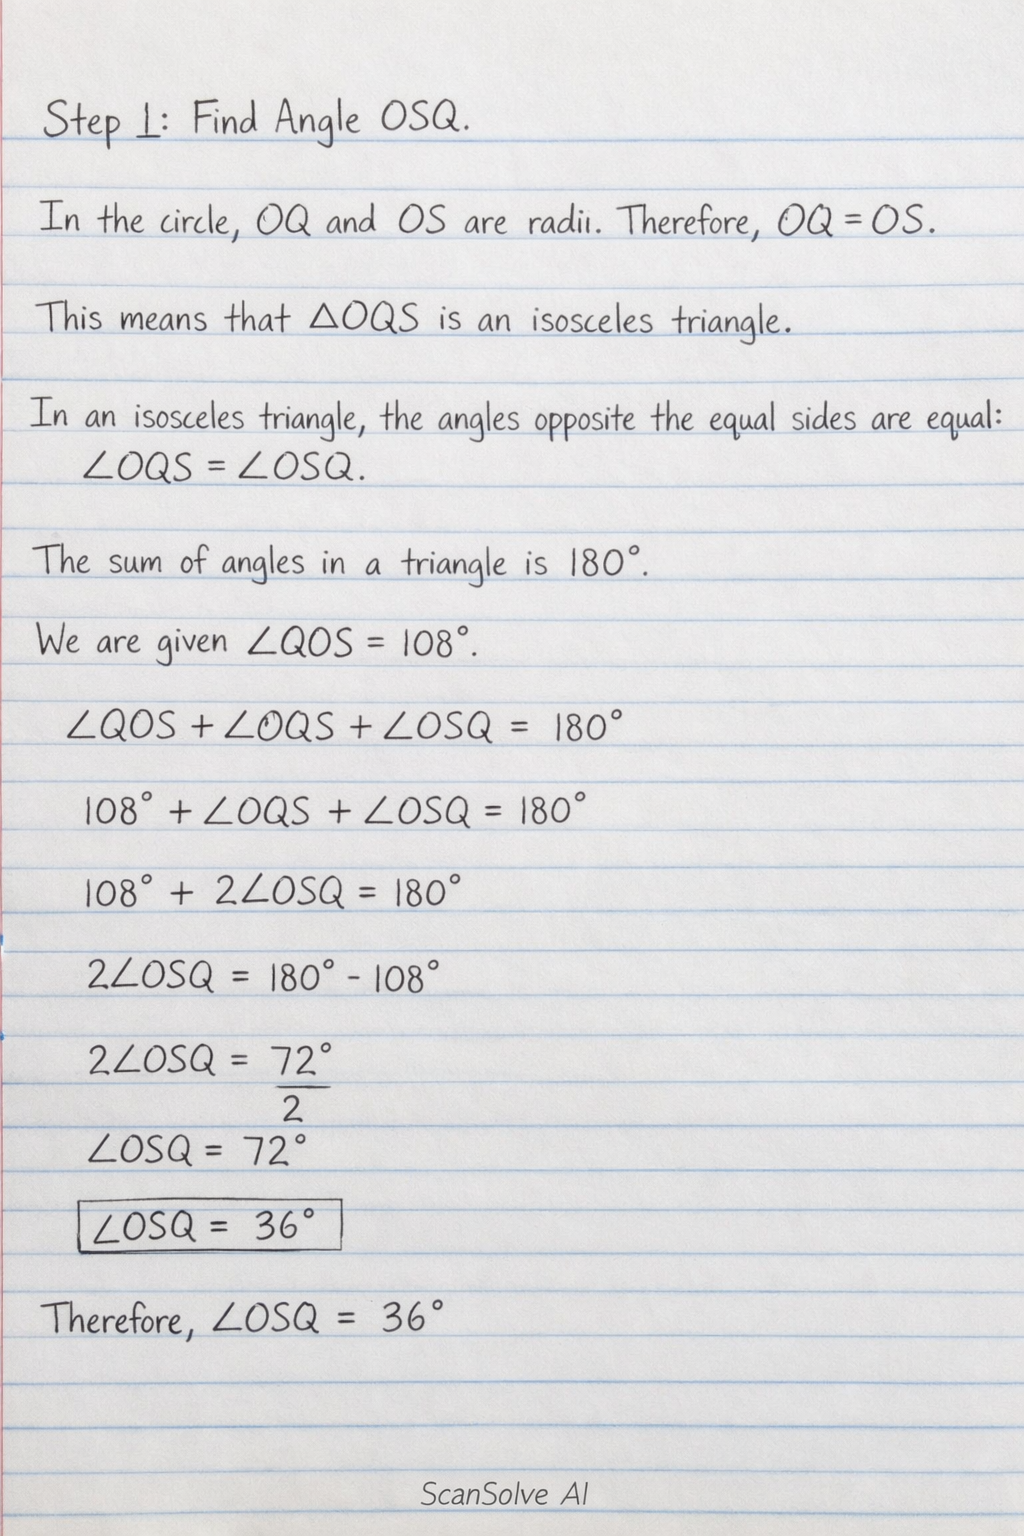 Step 1: Find Angle OSQ.
In the circle, OQ and OS are radii. Therefore, OQ = OS.
This means that △OQS is an isosceles triangle.
In an isosceles triangle, the angles opposite the equal sides are equal:
∠OQS = ∠OSQ.
The sum of angles in a triangle is 180°.
We are given ∠QOS = 108°.
∠QOS + ∠OQS + ∠OSQ = 180°
108° + ∠OQS + ∠OSQ = 180°
108° + 2∠OSQ = 180°
2∠OSQ = 180° - 108°
2∠OSQ = 72°
2
∠OSQ = 72°
∠OSQ = 36°
Therefore, ∠OSQ = 36°
ScanSolve AI